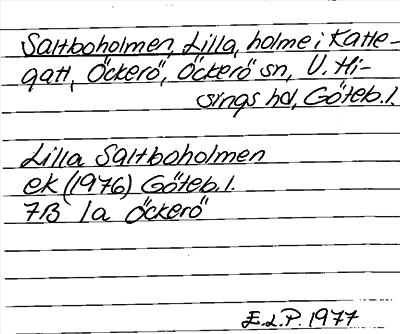 Saltboholmen, Lilla, holme i Katte-
gatt, Öckerö, Öckerö sn, V. Hi-
sings hd, Göteb. l.
Lilla Saltboholmen
ek (1976) Göteb. l.
7B 1a Öckerö
E.L.P. 1977